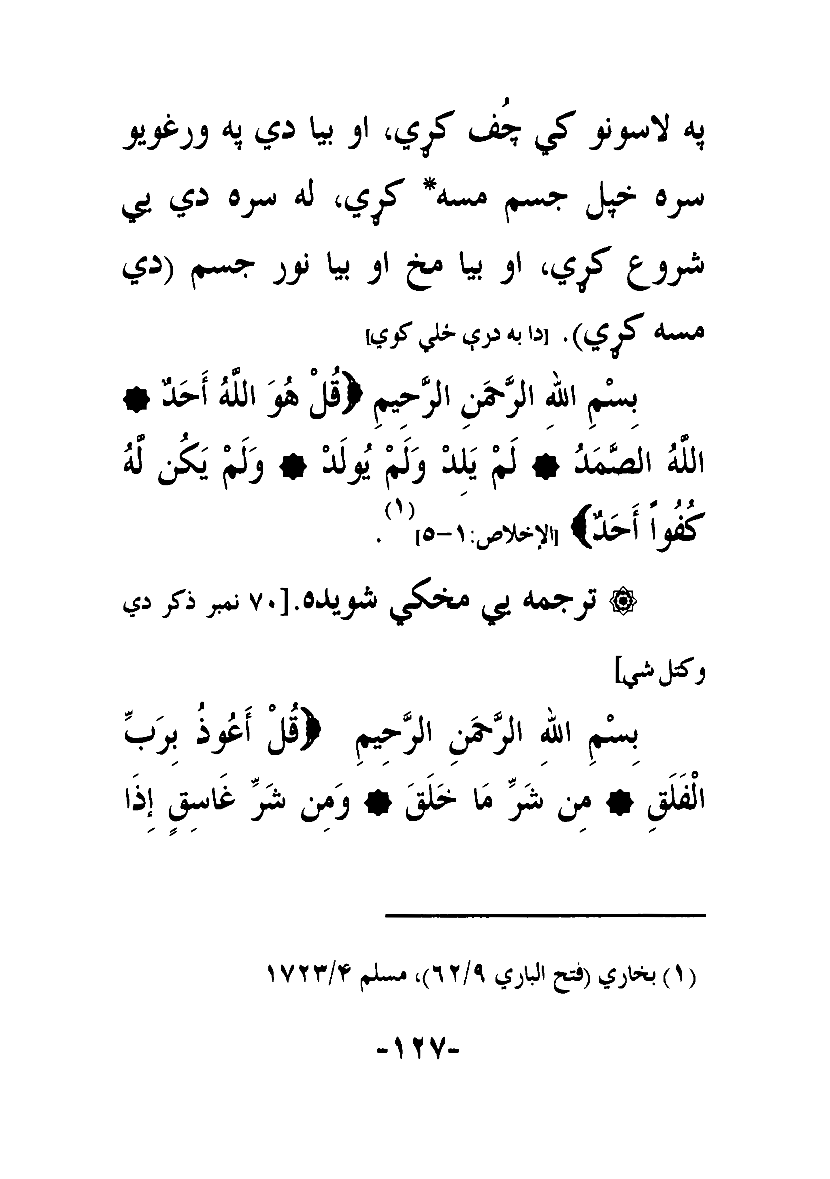 په لاسونو کي چُف کړي، او بيا دي په ورغويو
سره خپل جسم مسه* کړي، له سره دي يې
شروع کړي، او بيا مخ او بيا نور جسم (دي
مسه کړي). [دا به درې ځلي کوي]
بِسْمِ اللهِ الرَّحْمَنِ الرَّحِيمِ ﴿قُلْ هُوَ اللَّهُ أَحَدٌ ۞
اللَّهُ الصَّمَدُ ۞ لَمْ يَلِدْ وَلَمْ يُولَدْ ۞ وَلَمْ يَكُن لَّهُ
كُفُواً أَحَدٌ﴾ [الإخلاص:۱-۵](۱).
۞ ترجمه يې مخکي شويده.[۷۰ نمبر ذکر دي
وکتل شي]
بِسْمِ اللهِ الرَّحْمَنِ الرَّحِيمِ ﴿قُلْ أَعُوذُ بِرَبِّ
الْفَلَقِ ۞ مِن شَرِّ مَا خَلَقَ ۞ وَمِن شَرِّ غَاسِقٍ إِذَا
(۱) بخاري (فتح الباري ۶۲/۹)، مسلم ۱۷۲۳/۴
-۱۲۷-